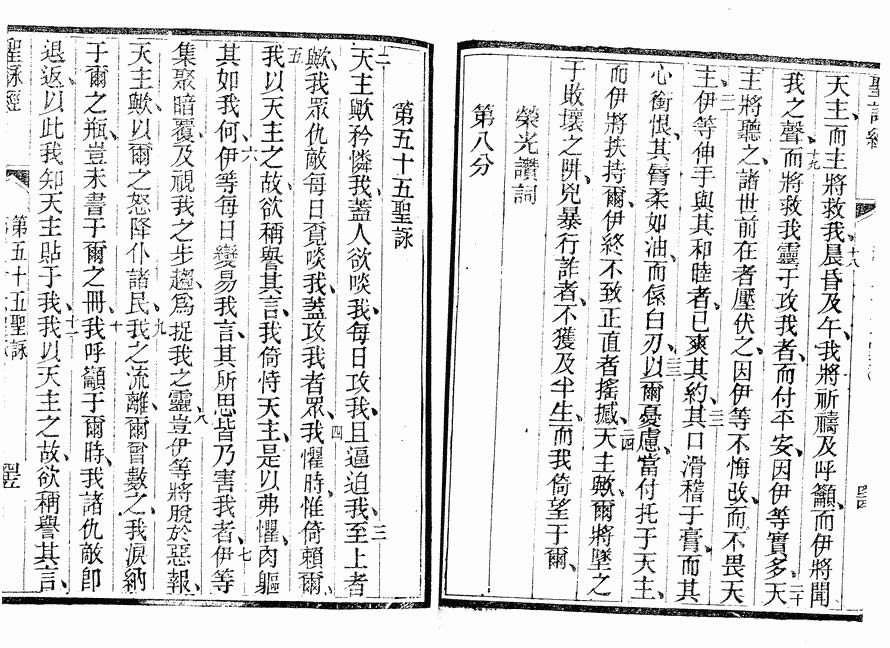 聖詠經
天主而主將救我十八晨昏及午我將祈禱及呼籲而伊將聞
我之聲十九而將救我靈于攻我者而付平安因伊等實多二十天
主將聽之諸世前在者壓伏之因伊等不悔改而不畏天
主二一伊等伸手與其和睦者已爽其約二二其口滑稽于膏而其
心銜恨其唇柔如油而係白刃二三以爾憂慮當付托于天主
而伊將扶持爾伊終不致正直者搖撼二四天主歟爾將墜之
于敗壞之阱兇暴行詐者不獲及半生而我倚望于爾
榮光讚詞
第八分
第五十五聖詠
二天主歟矜憐我蓋人欲啖我每日攻我且逼迫我三至上者
歟我眾仇敵每日覓啖我蓋攻我者眾四我懼時惟倚賴爾
五我以天主之故欲稱譽其言我倚恃天主是以弗懼肉軀
其如我何六伊等每日變易我言其所思皆乃害我者七伊等
集聚暗覆及視我之步趨為捉我之靈八豈伊等將脫於惡報
天主歟以爾之怒降仆諸民九我之流離爾曾數之我淚納
于爾之瓶豈未書于爾之冊十我呼籲于爾時我諸仇敵即
退返以此我知天主貼于我十一我以天主之故欲稱譽其言
聖詠經
第五十五聖詠